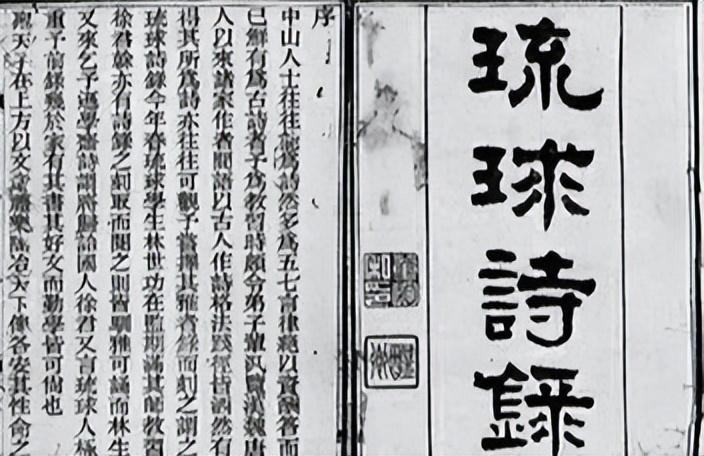 琉球詩錄
序
中山人士往往能為詩然多為五七言律絕以資酬答而
已鮮有為古詩者予為教習時頗令弟子輩汎覽漢魏唐
人以來諸家作者間語以古人作詩格法蹊徑皆洞然有
得其所為詩亦往往可觀予嘗擇其雅者錄而刻之謂之
琉球詩錄今年春琉球學生林世功在監期滿其教習
徐君幹亦有詩錄之刻取而閱之則皆馴雅可誦而林生
又來乞予遜學齋詩謂將歸詒國人徐君又言琉球人極
重予前錄幾於家有其書其好文而勤學皆可尚也
聖天子在上方以文章樂陶冶天下俾各安其性命之